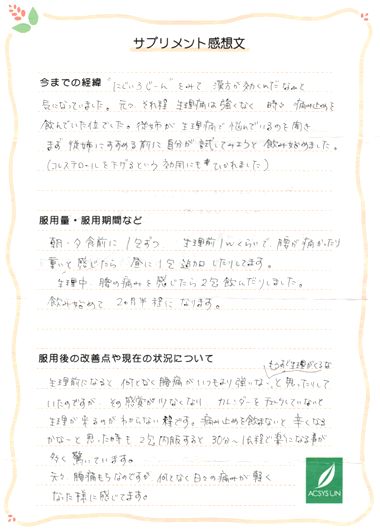 サプリメント感想文
今までの経緯 "にじいろじーん"をみて 漢方が効くんだなぁと
気になっていました。元々 それ程 生理痛は強くなく 時々 痛み止めを
飲んでいた位でした。従姉が生理痛で悩んでいるのを聞き
まず従姉にすすめる前に自分が試してみようと飲み始めました。
(コレステロールを下げるという効用にもひかれました)
服用量・服用期間など
朝・夕食前に 1包ずつ 生理前1wくらいで、腰が痛かったり
重いと感じたら 昼に1包追加したりしてます。
生理中、腹の痛みを感じたら2包飲んだりしました。
飲み始めて 2ヶ月半程になります。
服用後の改善点や現在の状況について
もうすぐ生理がくるな
生理前になると 何となく腰痛がいつもより強いな、と思ったりして
いたのですが、その感覚が少なくなり カレンダーをチェックしていないと
生理が来るのがわからない程です。痛み止めを飲まないと辛くなる
かな〜と思った時も 2包内服すると 30分〜1h程で楽になる事が
多く 驚いています。
元々 腰痛もちなのですが 何となく日々の痛みが軽く
なった様に感じてます。
ACSYS LIN